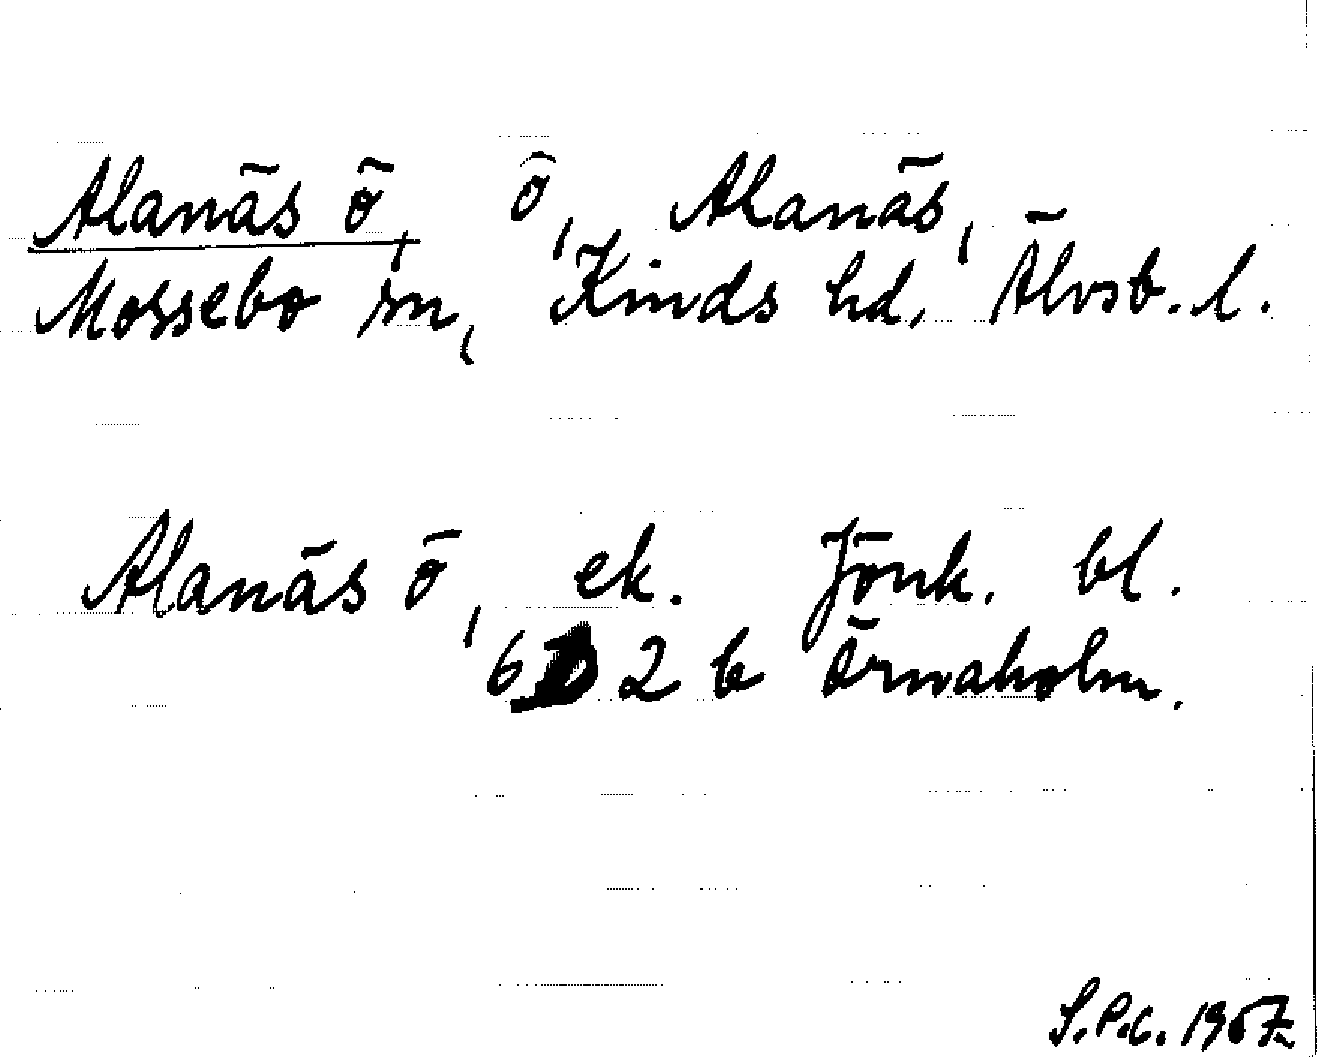 Alanäs ö, ö, Alanäs,
Mossebo sn, Kinds hd, Älvsb. l.
Alanäs ö, ek. Jönk. bl.
6 2 b Örnaholm.
S.P.G. 1967